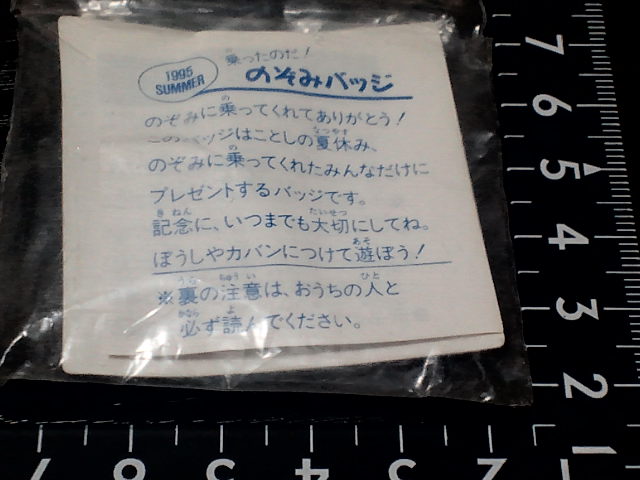 1995
SUMMER
乗ったのだ!
のぞみバッジ
のぞみに乗ってくれてありがとう!
このバッジはことしの夏休み、
のぞみに乗ってくれたみんなだけに
プレゼントするバッジです。
記念に、いつまでも大切にしてね。
ぼうしやカバンにつけて遊ぼう!
※裏の注意は、おうちの人と
必ず読んでください。
7
6
5
4
3
2
1
7 6 5 4 3 2